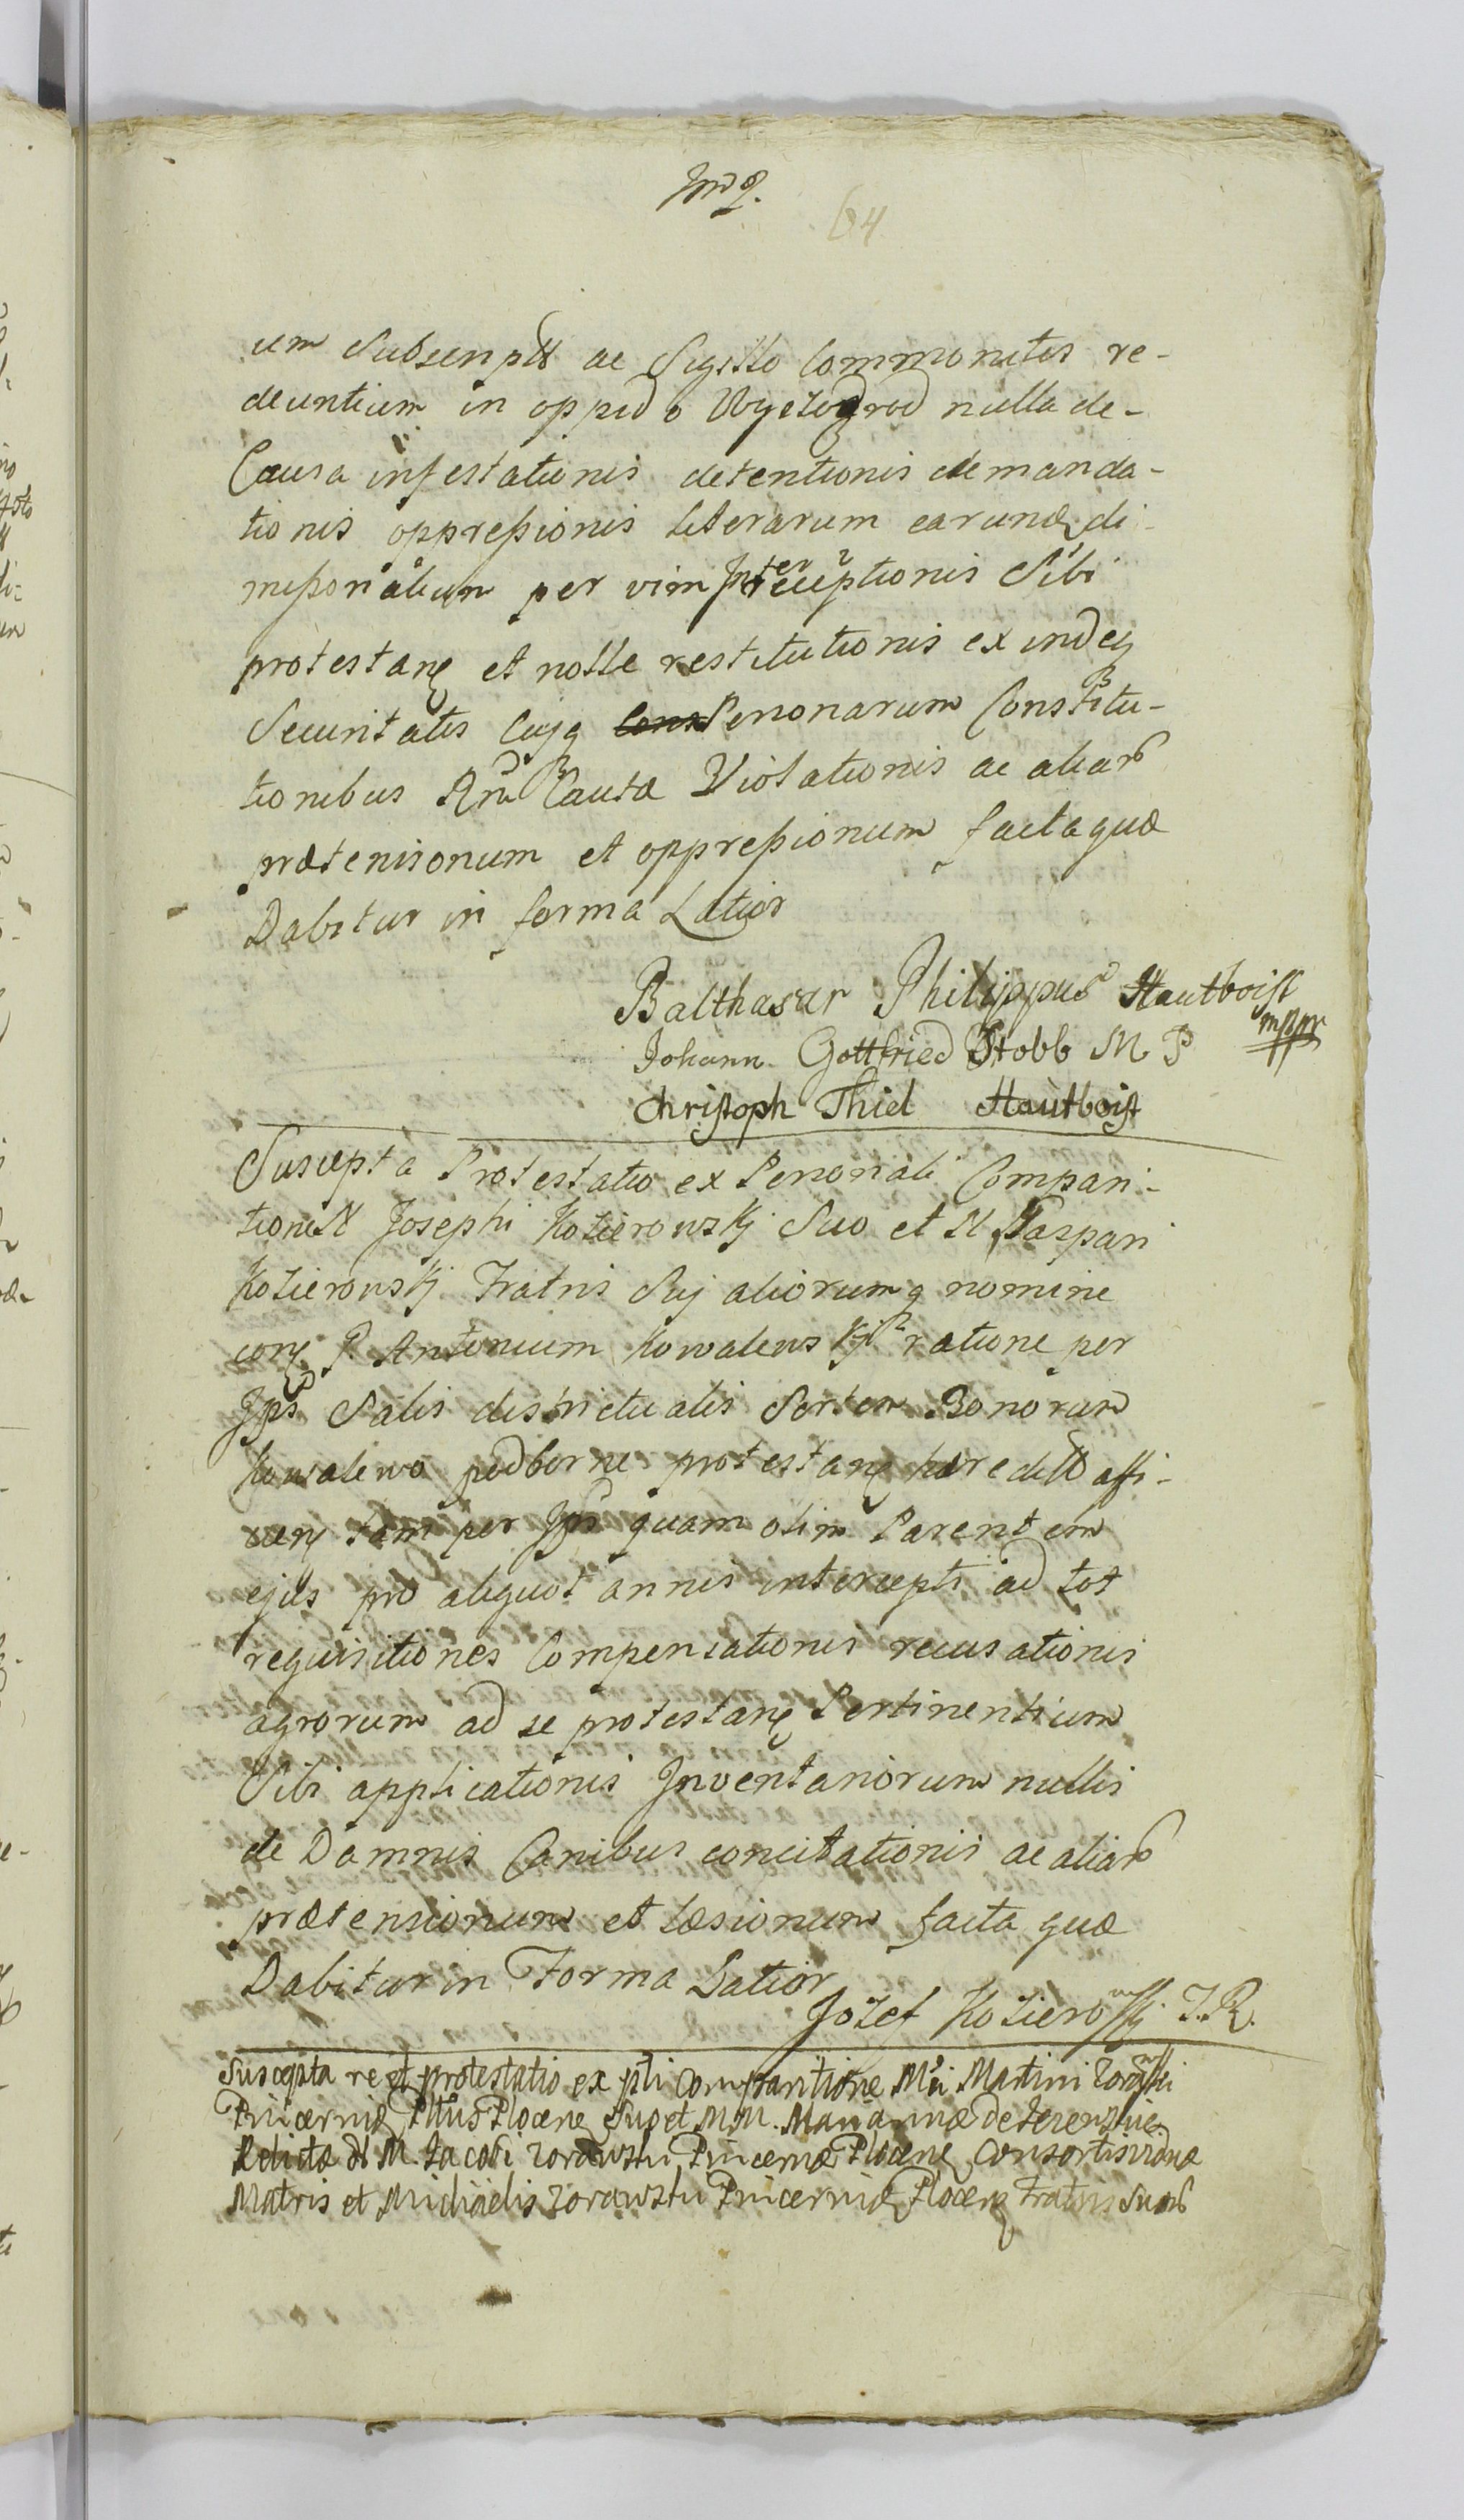 64
um Subscriptt ac Sigillo Commonitis re-
deuntium in oppido Wyszogrod nulla de-
Causa infestationis detentionis demanda-
tionis oppreßionis literarum earund di-
mißorialium per vim Interceptionis Sibi
protestanę et nolle restitutionis exindeq
Securitatis Cujq Personarum Constitu-
tionibus Rni Cauta Violationis ac aliar
prætensionum et oppreßionum facta quæ
Dabitur in forma Latior
Balthasar Philippus Hautboist
mppr
Johann Gottfried Stobb M P
Christoph Thiel Hautboist
Suscepta Protestatio ex Personali Compari-
tione N Josephi Kozierowskj Suo et N Kaspari
Kozierowskj Fratris Suj aliorumq nomine
conę P. Antonium Kowalewskj ratione per
Jps Salis districtualis Sortem Bonorum
Kowalewo podborne protestanę hæreditt affi-
cienę tam per Jps quam olim Parentem
ejus pro aliquot annis intercepti ad tot
requisitiones Compensationis recusationis
agrorum ad se protestanę Pertinentium
Sibi applicationis Inventariorum nullis
de Damnis Canibus concitationis ac aliar
prætensionum et læsionum facta quæ
Dabitur in Forma Latior
Jozef Kozierowskj T.R.
Suscepta re et protestatio ex pli Comparitione M Martini Zorawski
Pincernidę Pttus Plocenę Suo et M.M. Mariannæ de
Relictæ N M. Jacobi Zorawski Pincernæ Plocenę Consortis viduæ
Matris et Michaelis Zorawski Pincernidę Plocenę Fratris Suor